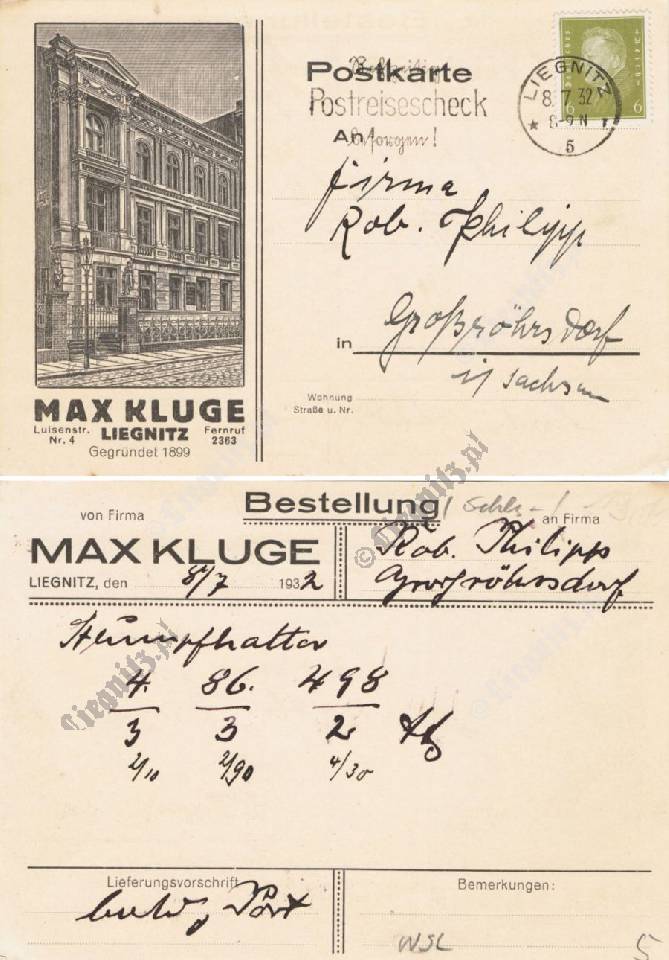 Postkarte
Postreisescheck
besorgen!
An
LIEGNITZ
8.7.32
8-9 N
5
6 6
Firma
Rob. Philipp
in Großröhrsdorf
i/ Sachsen
Wohnung
Straße u. Nr.
MAX KLUGE
Luisenstr. Nr. 4 LIEGNITZ Fernruf 2363
Gegründet 1899
Bestellung
von Firma
an Firma
MAX KLUGE
Rob. Philipp
LIEGNITZ, den 8/7 1932
Grossröhrsdorf
Strumpfhalter
4. 86. 498
3 3 2
2/10 2/90 4/30
Lieferungsvorschrift
Bemerkungen:
Post
WSL
5
© Liegnitz.pl
Liegnitz.pl